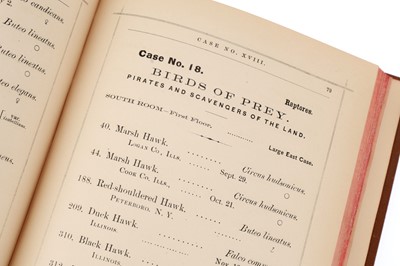 candicans.
2.
Buteo lineatus.
Buteo lineatus.
Buteo elegans.
CASE NO. XVIII.
75
Case No. 18.
BIRDS OF PREY. Raptores.
PIRATES AND SCAVENGERS OF THE LAND.
SOUTH ROOM—First Floor, Large East Case.
40. Marsh Hawk. Circus hudsonicus.
LOGAN CO., ILLS. Sept. 29.
44. Marsh Hawk. Circus hudsonicus.
COOK CO., ILLS. Oct. 21.
188. Red-shouldered Hawk. Buteo lineatus.
PETERBORO, N. Y.
209. Duck Hawk. Falco
ILLINOIS.
310. Black Hawk.
ILLINOIS.